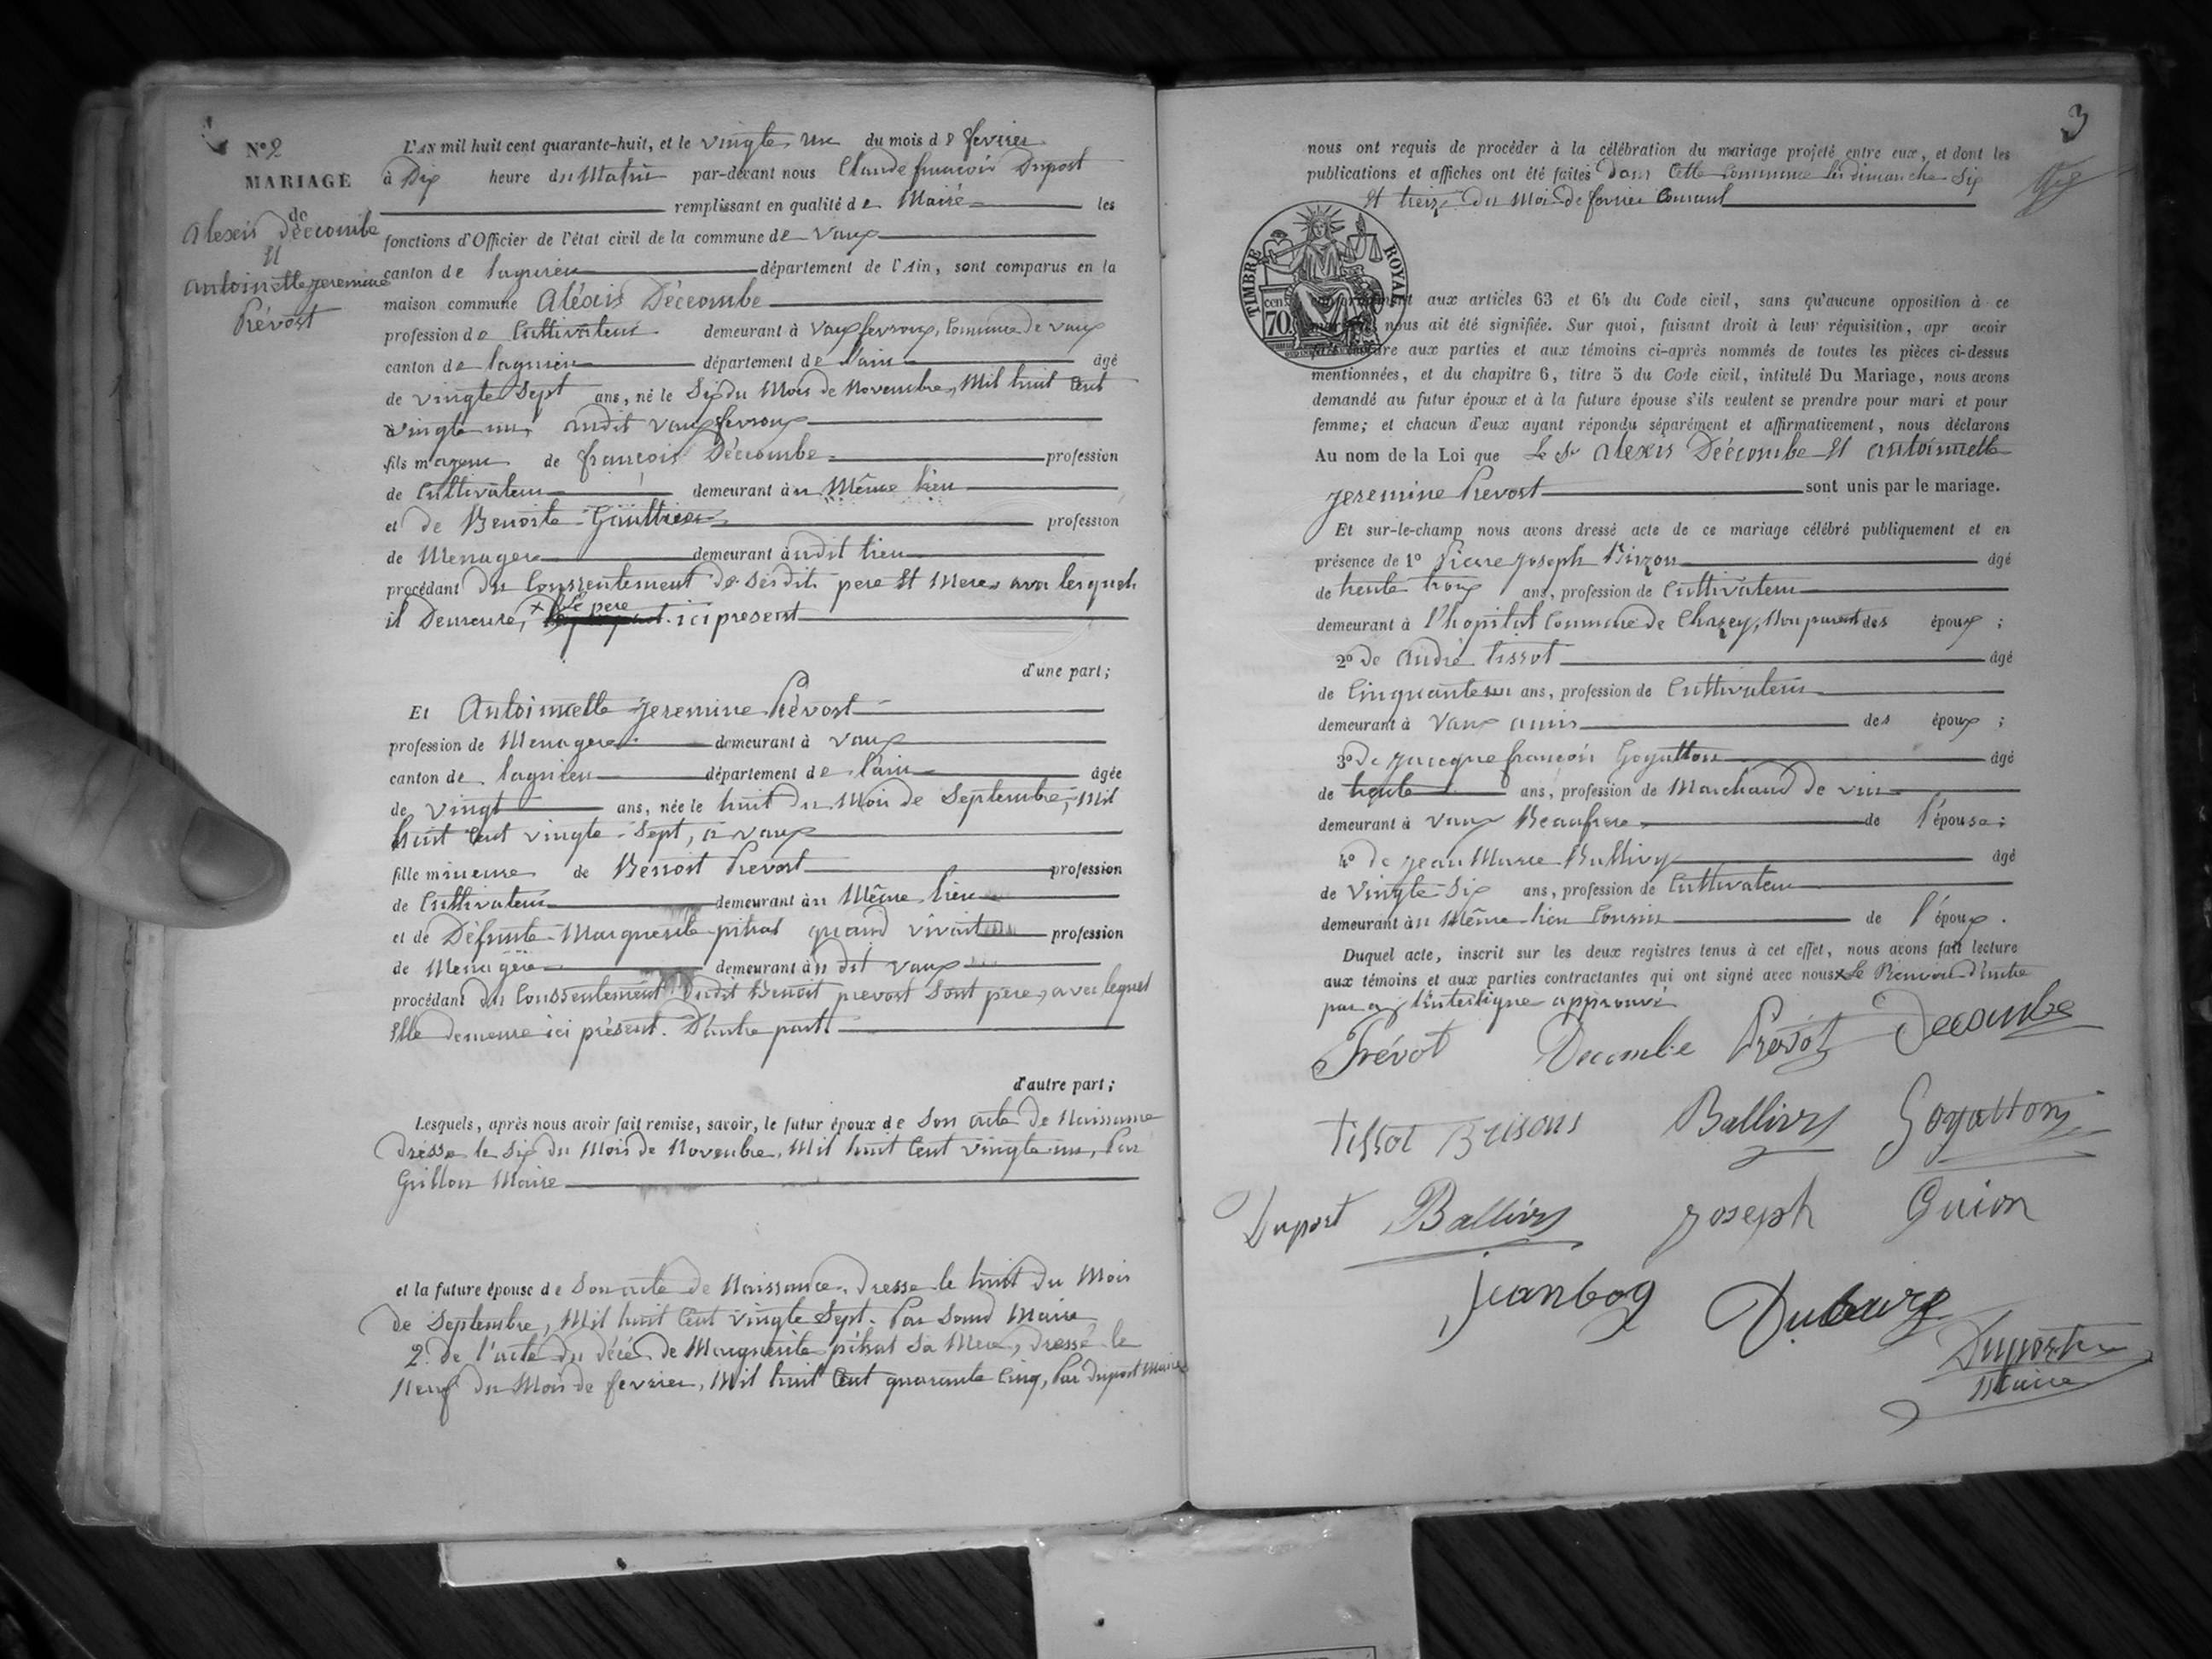 N° 2
MARIAGE
de
Alexis Décombe
Et
antoinette jeremine
Prévost
L'AN mil huit cent quarante-huit, et le vingte un du mois de fevrier
à Dix heure du Matin par-devant nous Claude françois Duport
remplissant en qualité de Maire les
fonctions d'Officier de l'état civil de la commune de Vaux
canton de lagnieu département de l'Ain, sont comparus en la
maison commune Aléxis Décombe
profession de Cultivateur demeurant à Vaux fevroux, Commune de vaux
canton de lagnieu département de l'ain âgé
de vingte Sept ans, né le Six du Mois de Novembre, Mil huit Cent
vingte un, audit vaux fevroux
fils majeur de françois Décombe profession
de Cultivateur demeurant àu Même lieu
et de Benoite Gauthier profession
de Menagere demeurant àudit lieu
procédant du Consentement de sesdits pere Et Mere, avec lesquels
il Demeure, x le pere ici present
d'une part;
Et Antoinette jeremine Prévost
profession de Menagere demeurant à vaux
canton de lagnieu département de l'ain âgée
de vingt ans, née le huit du Mois de Septembre, Mil
huit Cent vingte-Sept, à vaux
fille mineure de Benoit Prevost profession
de Cultivateur demeurant àu Même lieu
et de Défunte Marguerite pitrat quand vivait profession
de Menagère demeurant àu dit vaux
procédant du Consentement dudit Benoit prevost Sont père, avec lequel
Elle demeure ici présent. D'autre part.
d'autre part;
Lesquels, après nous avoir fait remise, savoir, le futur époux de Son acte de Naissance
dressé le Six du Mois de Novembre, Mil huit Cent vingte un, Par
Grillon Maire
et la future épouse de Son acte de Naissance, dressé le huit du Mois
de Septembre, Mil huit Cent vingte Sept. Par Maire
2. de l'acte du décé de Marguerite pitrat Sa Mere, dressé le
Neuf du Mois de fevrier, Mil huit Cent quarante Cinq, Par Duport Maire
3
nous ont requis de procéder à la célébration du mariage projeté entre eux, et dont les
publications et affiches ont été faites Dans Cette Commune les dimanche Six
Et treize du Mois de fevrier Courant
TIMBRE ROYAL
cen. 70.
aux articles 63 et 64 du Code civil, sans qu'aucune opposition à ce
nous ait été signifiée. Sur quoi, faisant droit à leur réquisition, apr avoir
aux parties et aux témoins ci-après nommés de toutes les pièces ci-dessus
mentionnées, et du chapitre 6, titre 5 du Code civil, intitulé Du Mariage, nous avons
demandé au futur époux et à la future épouse s'ils veulent se prendre pour mari et pour
femme; et chacun d'eux ayant répondu séparément et affirmativement, nous déclarons
Au nom de la Loi que Le Sr Alexis Décombe Et Antoinette
jeremine Prevost sont unis par le mariage.
Et sur-le-champ nous avons dressé acte de ce mariage célébré publiquement et en
présence de 1° Pierre joseph Brizon âgé
de trente troix ans, profession de Cultivateur
demeurant à l'hopital Commune de Chazey, Non parent des époux;
2° de André tissot âgé
de Cinquante un ans, profession de Cultivateur
demeurant à Vaux amis des époux;
3° de jacque françois Goyatton âgé
de trente ans, profession de Marchand de vin
demeurant à vaux Beaufrere de l'épouse;
4° de jean Marie Ballivy âgé
de vingte-Six ans, profession de Cultivateur
demeurant àu Même-lieu Cousin de l'époux.
Duquel acte, inscrit sur les deux registres tenus à cet effet, nous avons fait lecture
aux témoins et aux parties contractantes qui ont signé avec nous x Le Renvoi d'autre
par l'interligne approuvé
Prévot Decombe Prévot Decombe
Tissot Brisons Ballivy Goyatton
Duport Ballivy joseph Guion
jeanbog Dubourg
Duport
Maire